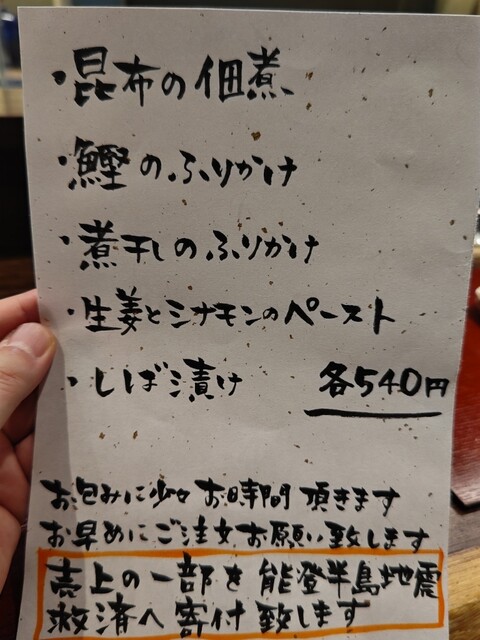 ・昆布の佃煮
・鰹のふりかけ
・煮干しのふりかけ
・生姜とシナモンのペースト
・しば漬け 各540円
お包みに少々お時間頂きます
お早めにご注文お願い致します
売上の一部を能登半島地震
救済へ寄付致します